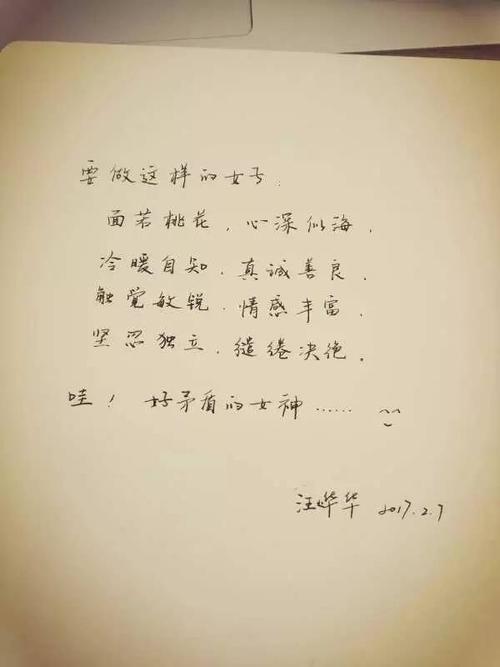 要做这样的女子:
面若桃花,心深似海,
冷暖自知,真诚善良,
触觉敏锐,情感丰富,
坚忍独立,缱绻决绝。
哇!好矛盾的女神…… ^^
汪华 2017.2.7